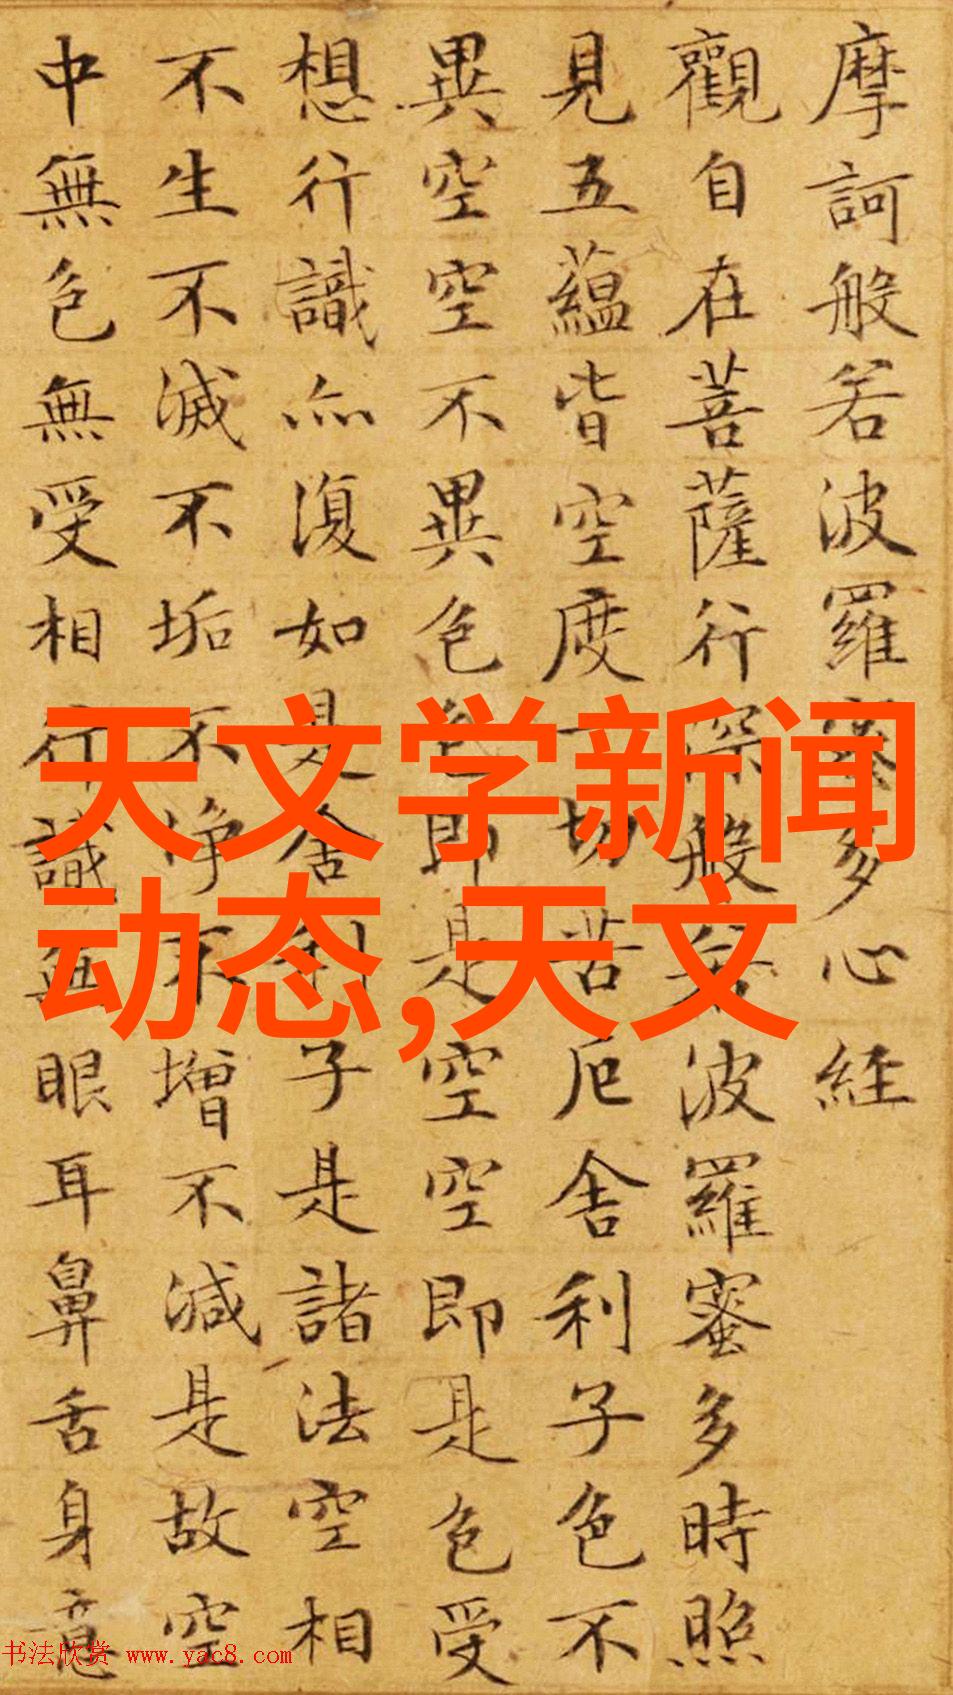 摩訶般若波羅蜜多心經
觀自在菩薩行深般若波羅蜜多時照
見五蘊皆空度一切苦厄舍利子色不
異空空不異色色即是空空即是色受
想行識亦復如是舍利子是諸法空相
不生不滅不垢不淨不增不減是故空
中無色無受相行識無眼耳鼻舌身意
天文学新闻
动态,天文
书法欣赏 www.yac8.com